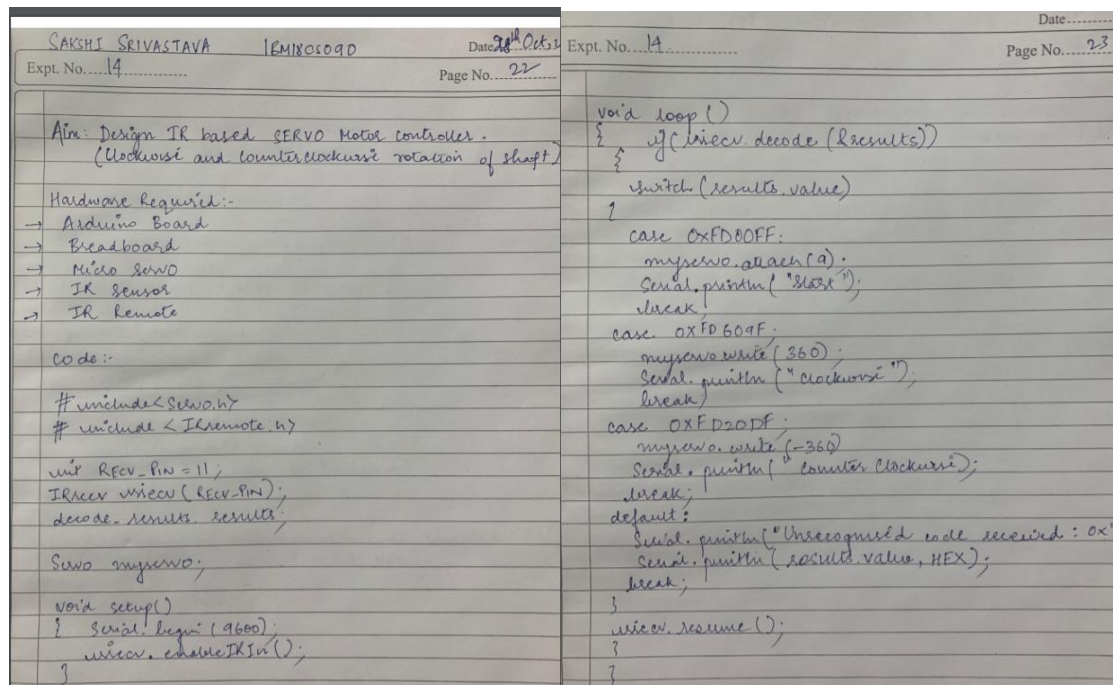 SAKSHI SRIVASTAVA 1BM18CS090 Date 28th Oct,2
Expt. No. 14
Page No. 22
Aim: Design IR based SERVO Motor controller.
(Clockwise and counterclockwise rotation of shaft)
Hardware Required:-
→ Arduino Board
→ Breadboard
→ Micro Servo
→ IR sensor
→ IR Remote
Code:-
# include<Servo.h>
# include <IRremote.h>
int RECV_PIN = 11;
IRrecv irrecv (RECV_PIN);
decode_results results;
Servo myservo;
void setup()
{ Serial.begin (9600);
irrecv. enableIRIn();
}
Date
Expt. No. 14
Page No. 23
void loop ()
{ if (irrecv. decode (&results))
{
switch (results.value)
{
case 0XFD00FF:
myservo.attach(9);
Serial.println( "Start");
break;
case 0XFD609F:
myservo.write (360);
Serial.println ("Clockwise");
break;
case 0XFD20DF:
myservo.write (-360)
Serial.println ( " counter Clockwise);
break;
default:
Serial.println ("Unrecognised code received : 0x"
Serial.println (results.value, HEX);
break;
}
irrecv. resume ();
}
}